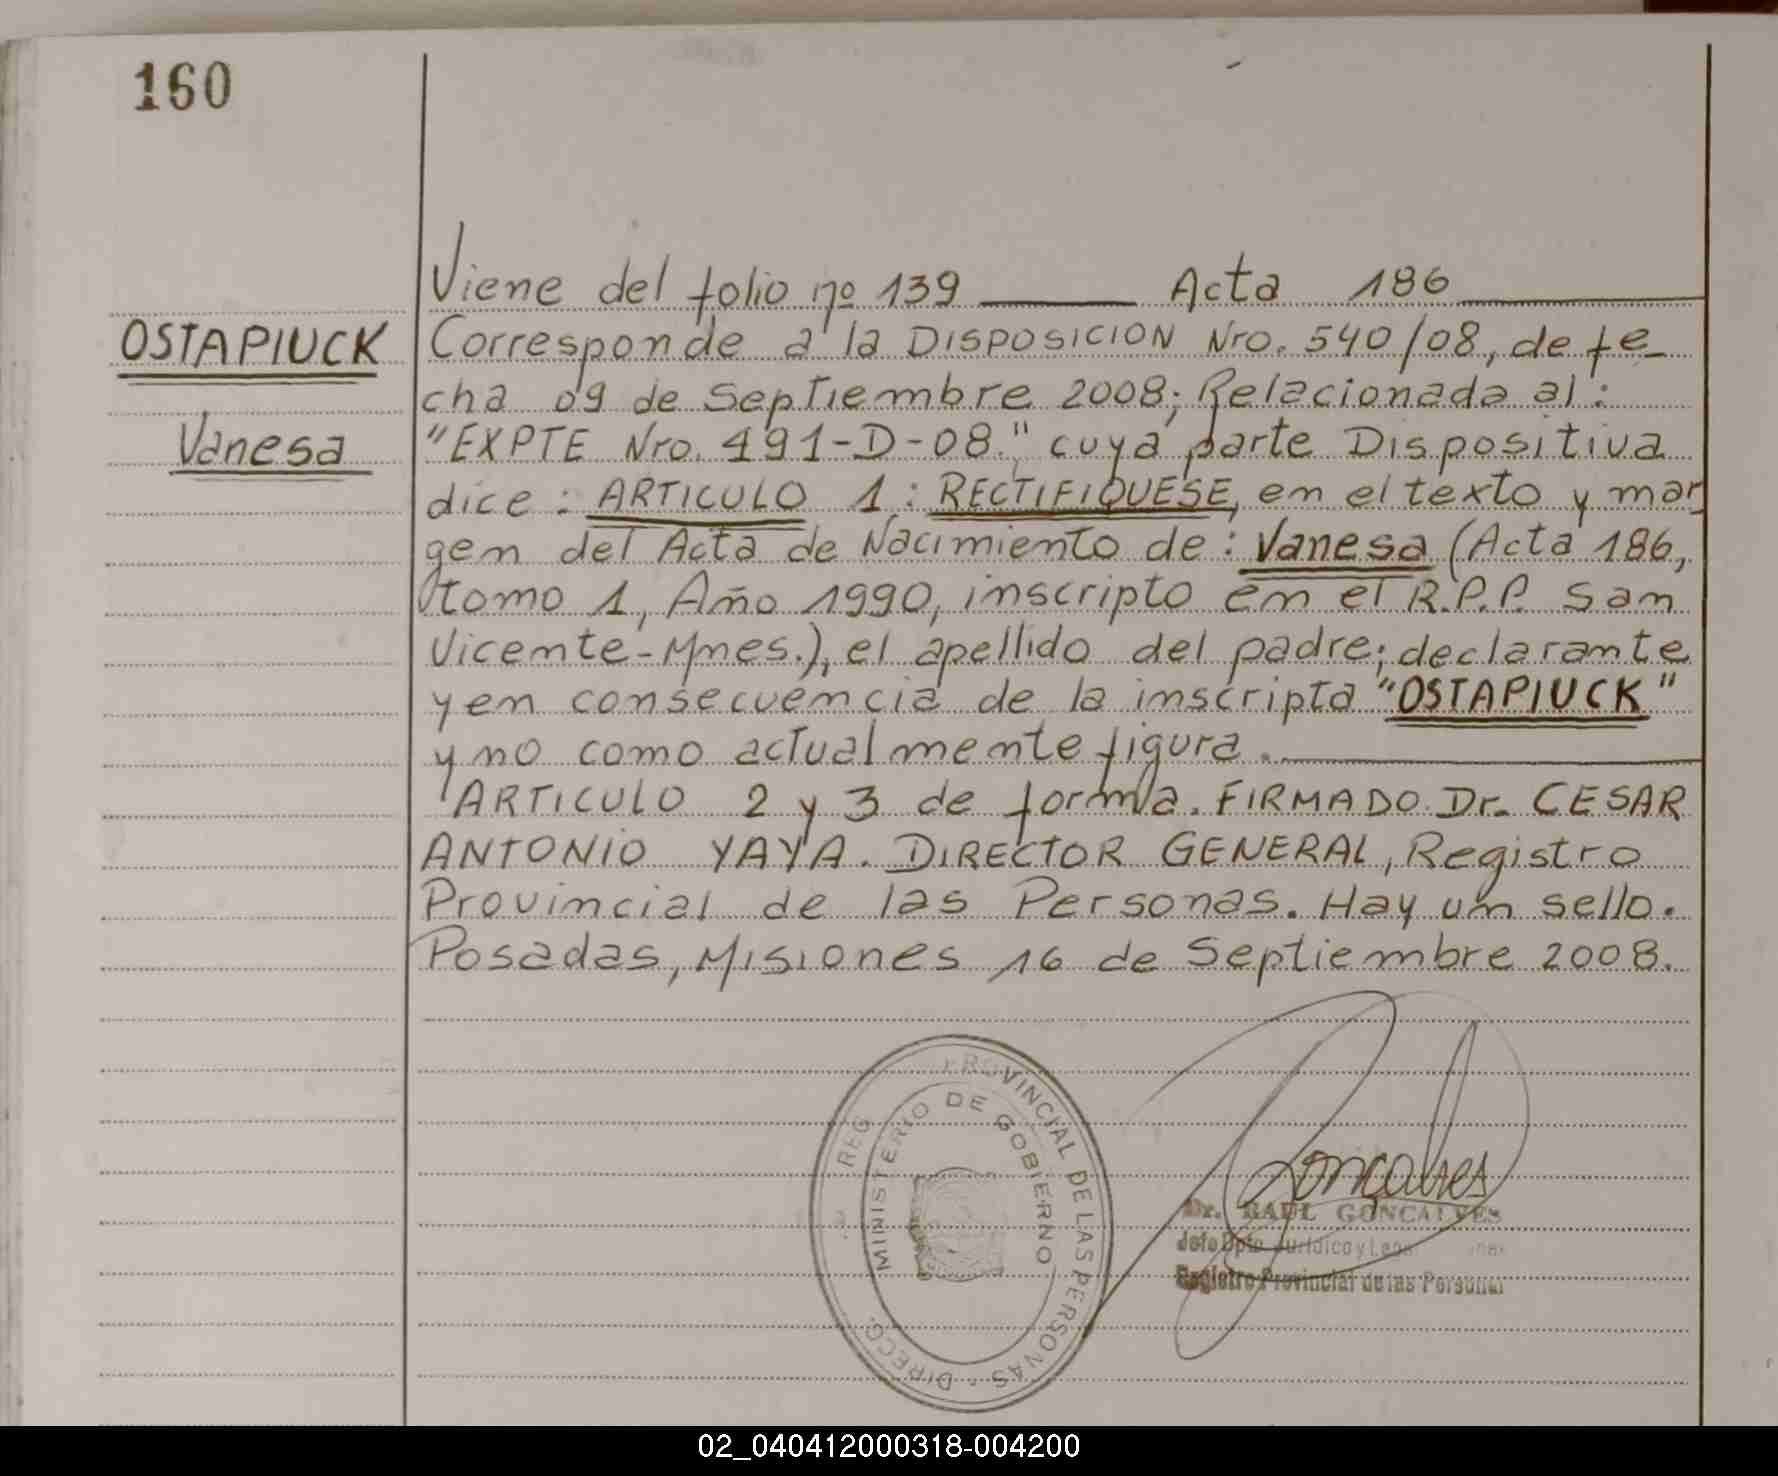 160
OSTAPIUCK
Vanesa
Viene del folio nº 139 Acta 186
Corresponde a la DISPOSICION Nro. 540/08, de fe_
cha 09 de Septiembre 2008; Relacionada al:
"EXPTE Nro. 491-D-08." cuya parte Dispositiva
dice: ARTICULO 1: RECTIFIQUESE, en el texto y mar_
gen del Acta de Nacimiento de: Vanesa (Acta 186,
tomo 1, Año 1990, inscripto en el R.P.P. San
Vicente-Mnes.), el apellido del padre; declarante
y en consecuencia de la inscripta "OSTAPIUCK"
y no como actualmente figura.
ARTICULO 2 y 3 de forma. FIRMADO. Dr. CESAR
ANTONIO YAYA. DIRECTOR GENERAL, Registro
Provincial de las Personas. Hay un sello.
Posadas, Misiones 16 de Septiembre 2008.
DIRECC. REG. PROVINCIAL DE LAS PERSONAS
MINISTERIO DE GOBIERNO
Goncalves
Dr. RAUL GONCALVES
Jefe Dpto. Jurídico y
Registro Provincial de las Personas
02_040412000318-004200